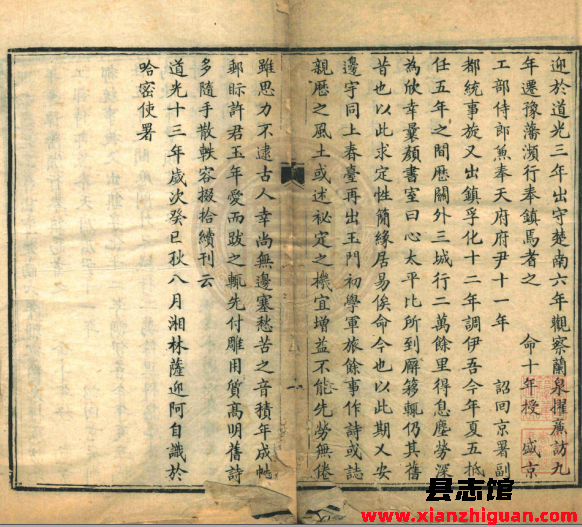 迎於道光三年出守楚南六年觀察蘭泉擢廉訪九
年遷豫藩瀕行奉鎮馬者之 命十年授 盛京
工部侍郎兼奉天府府尹十一年 詔回京署副
都統事旋又出鎮孚化十二年調伊吾今年夏五抵
任五年之間歷關外三城行二萬餘里得息塵勞深
為欣幸曩顏書室曰心太平比所到廨簃輒仍其舊
昔也以此求定性簡緣居易俟命今也以此期又安
邊宇同上春臺再出玉門初學軍旅餘事作詩或誌
親歷之風土或述祕定之機宜增益不能先勞無倦
雖思力不逮古人幸尚無邊塞愁苦之音積年成帙
郵眎許君玉年愛而跋之輒先付雕用質高明舊詩
多隨手散軼容掇拾續刊云
道光十三年歲次癸巳秋八月湘林薩迎阿自識於
哈密使署
一
县志馆
www.xianzhiguan.com